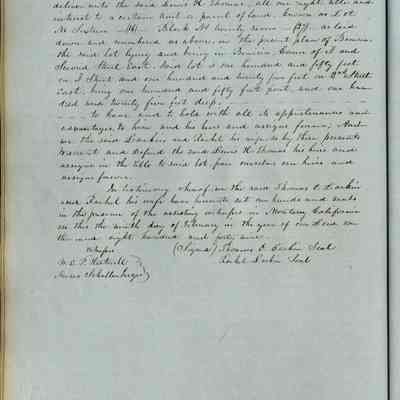 deliver unto the said Lewis H. Thomas, all our right title and
interest to a certain tract or parcel of land, known as Lot
No Sixteen (16) Block No twenty seven (27) as laid
down and numbered as above, in the present plan of Benicia
the said lot lying and being in Benicia, Corner of I and
Second Street East. Said lot is one hundred and fifty feet
on I Street and one hundred and twenty five feet on 2nd Street
East, being one hundred and fifty feet front and one hun-
dred and twenty five feet deep,
to have and to hold with all its appurtenances and
advantages to him and his heirs and assigns forever; And
we the said Larkin and Rachel his wife do by these presents
warrant and defend the said Lewis H. Thomas his heirs and
assigns in the title to said lot from ourselves our heirs and
assigns forever.
In testimony whereof, we the said Thomas O. Larkin
and Rachel his wife have hereunto set our hands and seals
in the presence of the assisting witnesses in Monterey California
on this the ninth day of February in the year of our Lord one
thousand eight hundred and forty nine.
Witnesses (Signed) Thomas O. Larkin Seal
W. E. P. Hartnell Rachel Larkin Seal
Moses Schallenberger